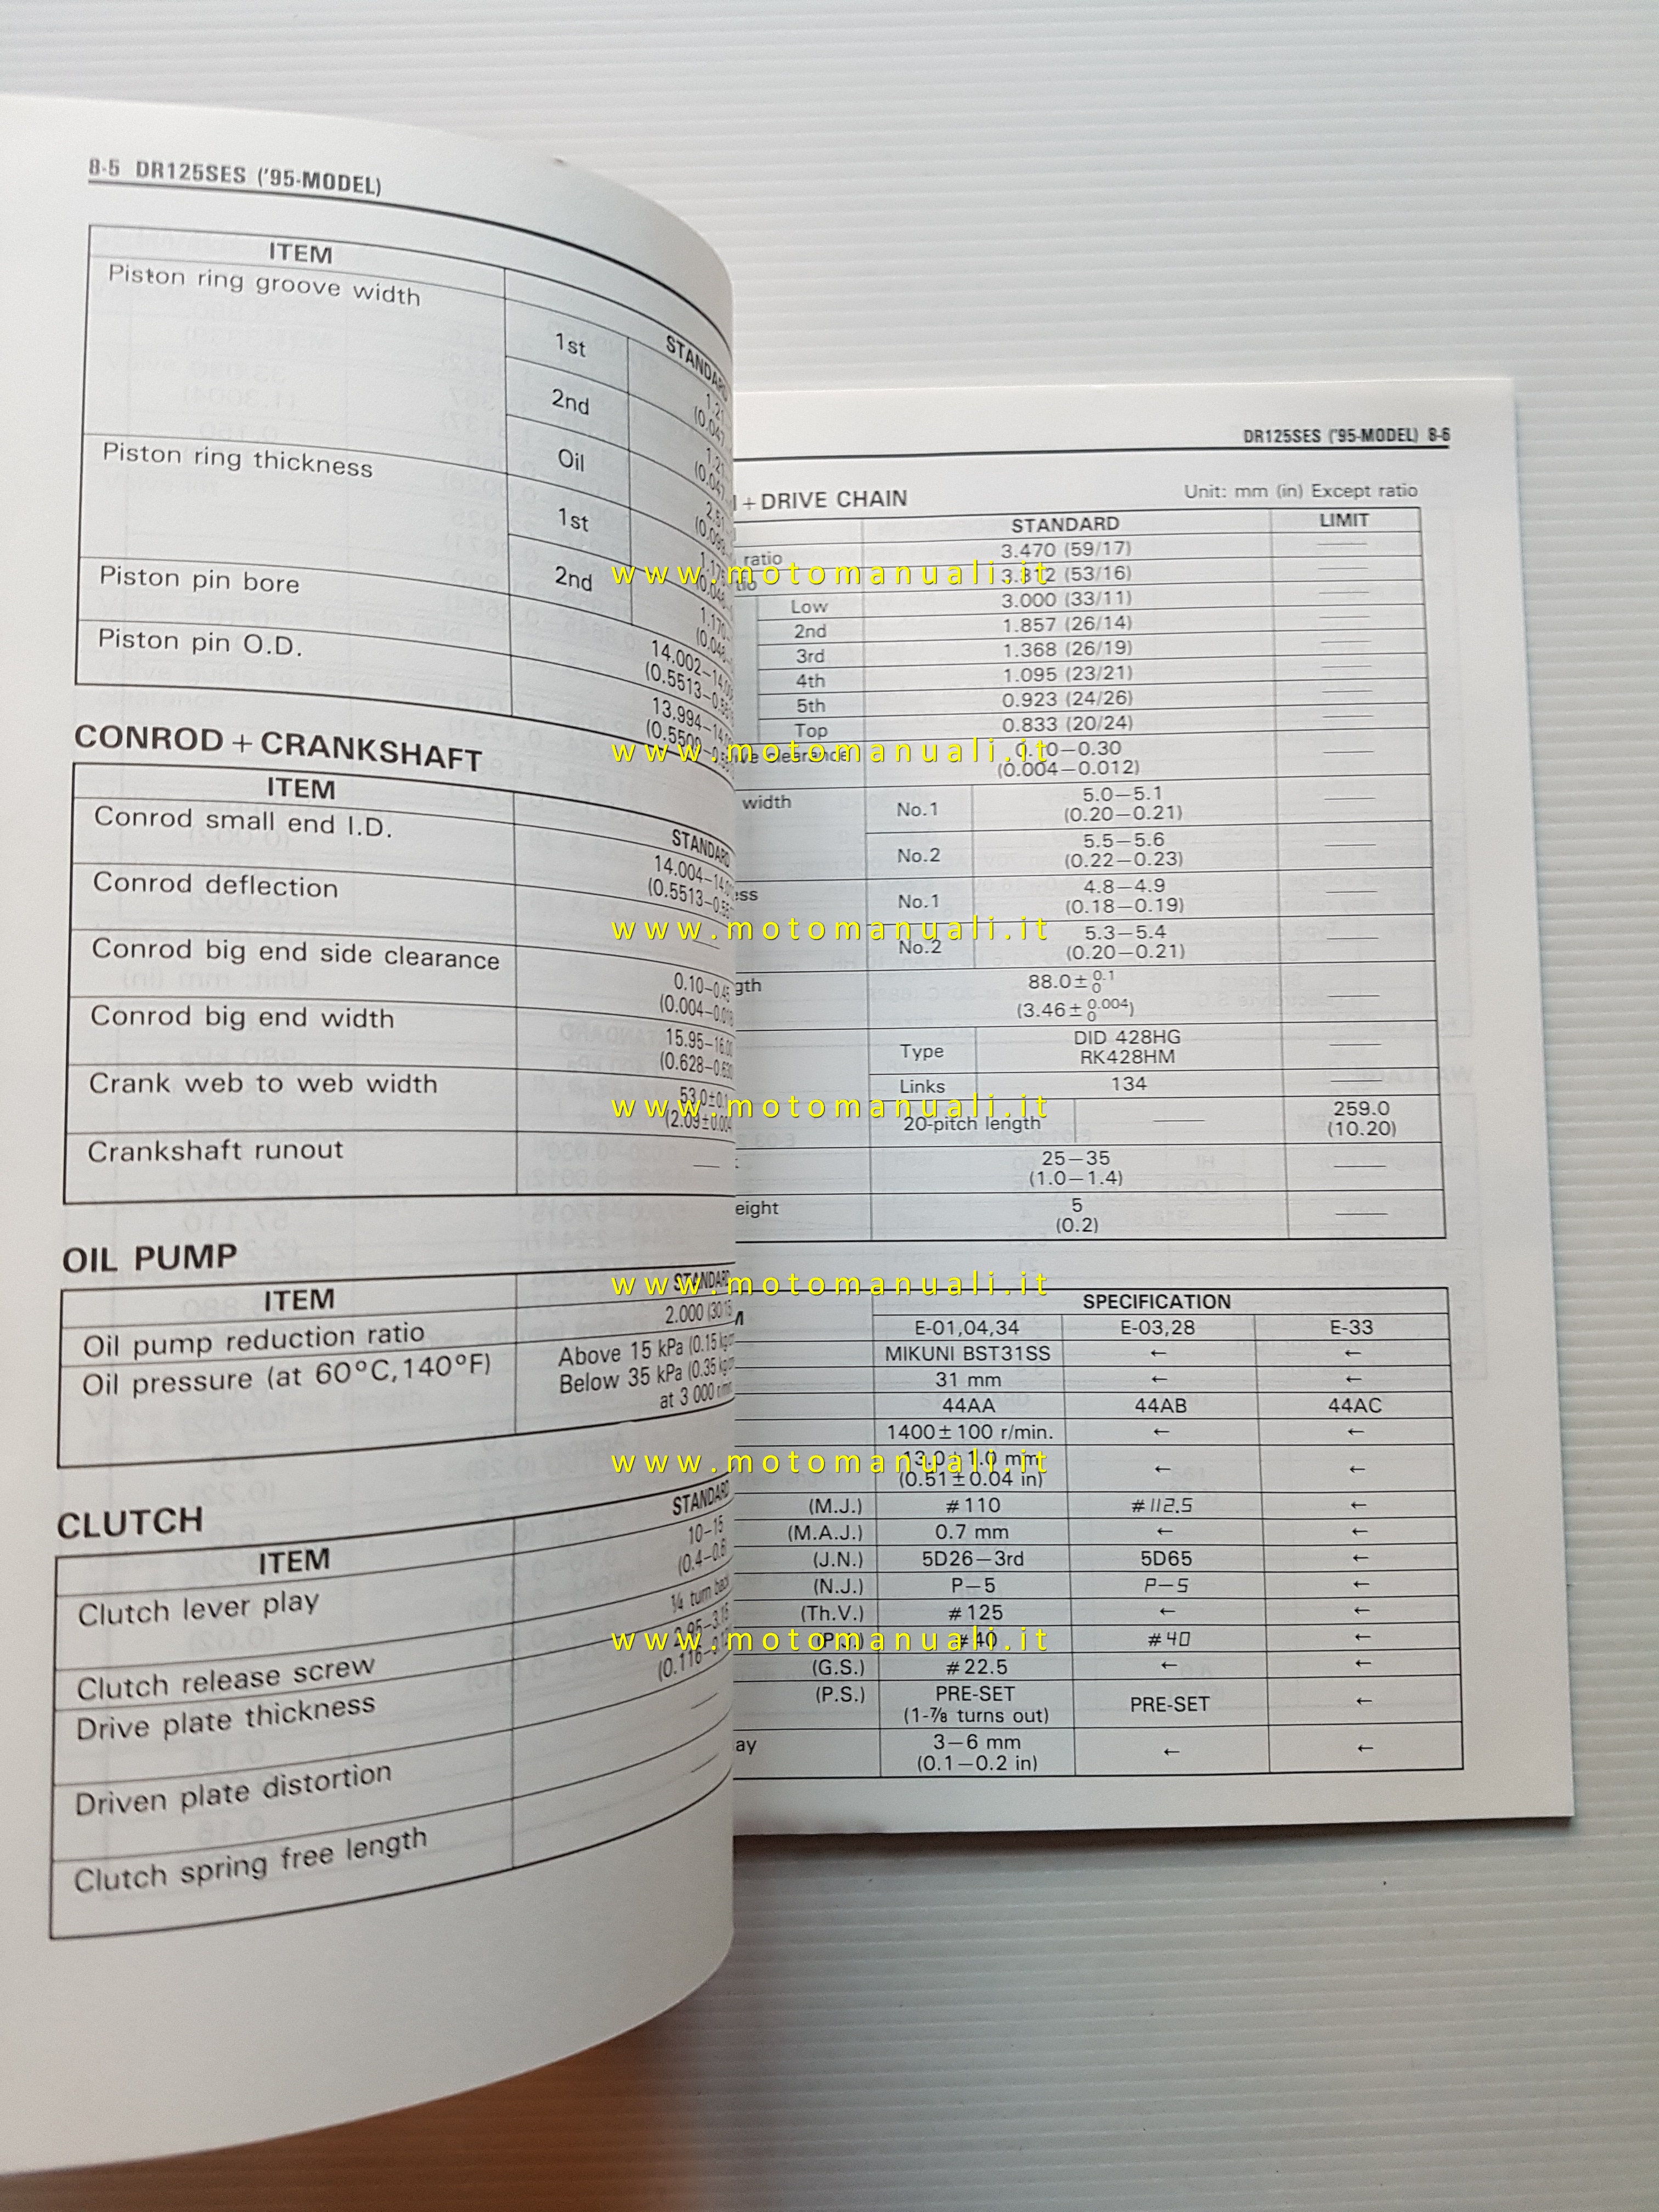 8-5 DR125SES ('95-MODEL)
ITEM
STANDARD
Piston ring groove width
1st
2nd
Oil
Piston ring thickness
1st
2nd
Piston pin bore
14.002–
Piston pin O.D.
13.994–
CONROD + CRANKSHAFT
ITEM
STANDARD
Conrod small end I.D.
14.004–
Conrod deflection
Conrod big end side clearance
0.10–0.45
(0.004–
Conrod big end width
15.95–16.00
(0.628–0.630
Crank web to web width
53.0±0.1
(2.09±0.004
Crankshaft runout
OIL PUMP
ITEM
STANDARD
Oil pump reduction ratio
2.000 (30/15
Oil pressure (at 60°C,140°F)
Above 15 kPa (0.15 kg/
Below 35 kPa (0.35 kg/
at 3 000 r/min
CLUTCH
ITEM
STANDARD
Clutch lever play
10–15
(0.4–0.6
Clutch release screw
¼ turn back
Drive plate thickness
2.95–3.15
(0.116–
Driven plate distortion
Clutch spring free length
DR125SES ('95-MODEL) 8-6
+ DRIVE CHAIN
Unit: mm (in) Except ratio
STANDARD LIMIT
ratio 3.470 (59/17)
3.312 (53/16)
Low 3.000 (33/11)
2nd 1.857 (26/14)
3rd 1.368 (26/19)
4th 1.095 (23/21)
5th 0.923 (24/26)
Top 0.833 (20/24)
clearance 0.10–0.30
(0.004–0.012)
width No.1 5.0–5.1
(0.20–0.21)
No.2 5.5–5.6
(0.22–0.23)
No.1 4.8–4.9
(0.18–0.19)
No.2 5.3–5.4
(0.20–0.21)
88.0± 0.1 0
(3.46± 0.004 0)
Type DID 428HG
RK428HM
Links 134
20-pitch length 259.0
(10.20)
25–35
(1.0–1.4)
eight 5
(0.2)
SPECIFICATION
E-01,04,34 E-03,28 E-33
MIKUNI BST31SS ← ←
31 mm ← ←
44AA 44AB 44AC
1400±100 r/min. ← ←
13.0±1.0 mm ← ←
(0.51±0.04 in)
(M.J.) #110 #112.5 ←
(M.A.J.) 0.7 mm ← ←
(J.N.) 5D26–3rd 5D65 ←
(N.J.) P–5 P–5 ←
(Th.V.) #125 ← ←
(P.J.) #40 #40 ←
(G.S.) #22.5 ← ←
(P.S.) PRE-SET PRE-SET ←
(1-⅞ turns out)
ay 3–6 mm ← ←
(0.1–0.2 in)
www.motomanuali.it
www.motomanuali.it
www.motomanuali.it
www.motomanuali.it
www.motomanuali.it
www.motomanuali.it
www.motomanuali.it